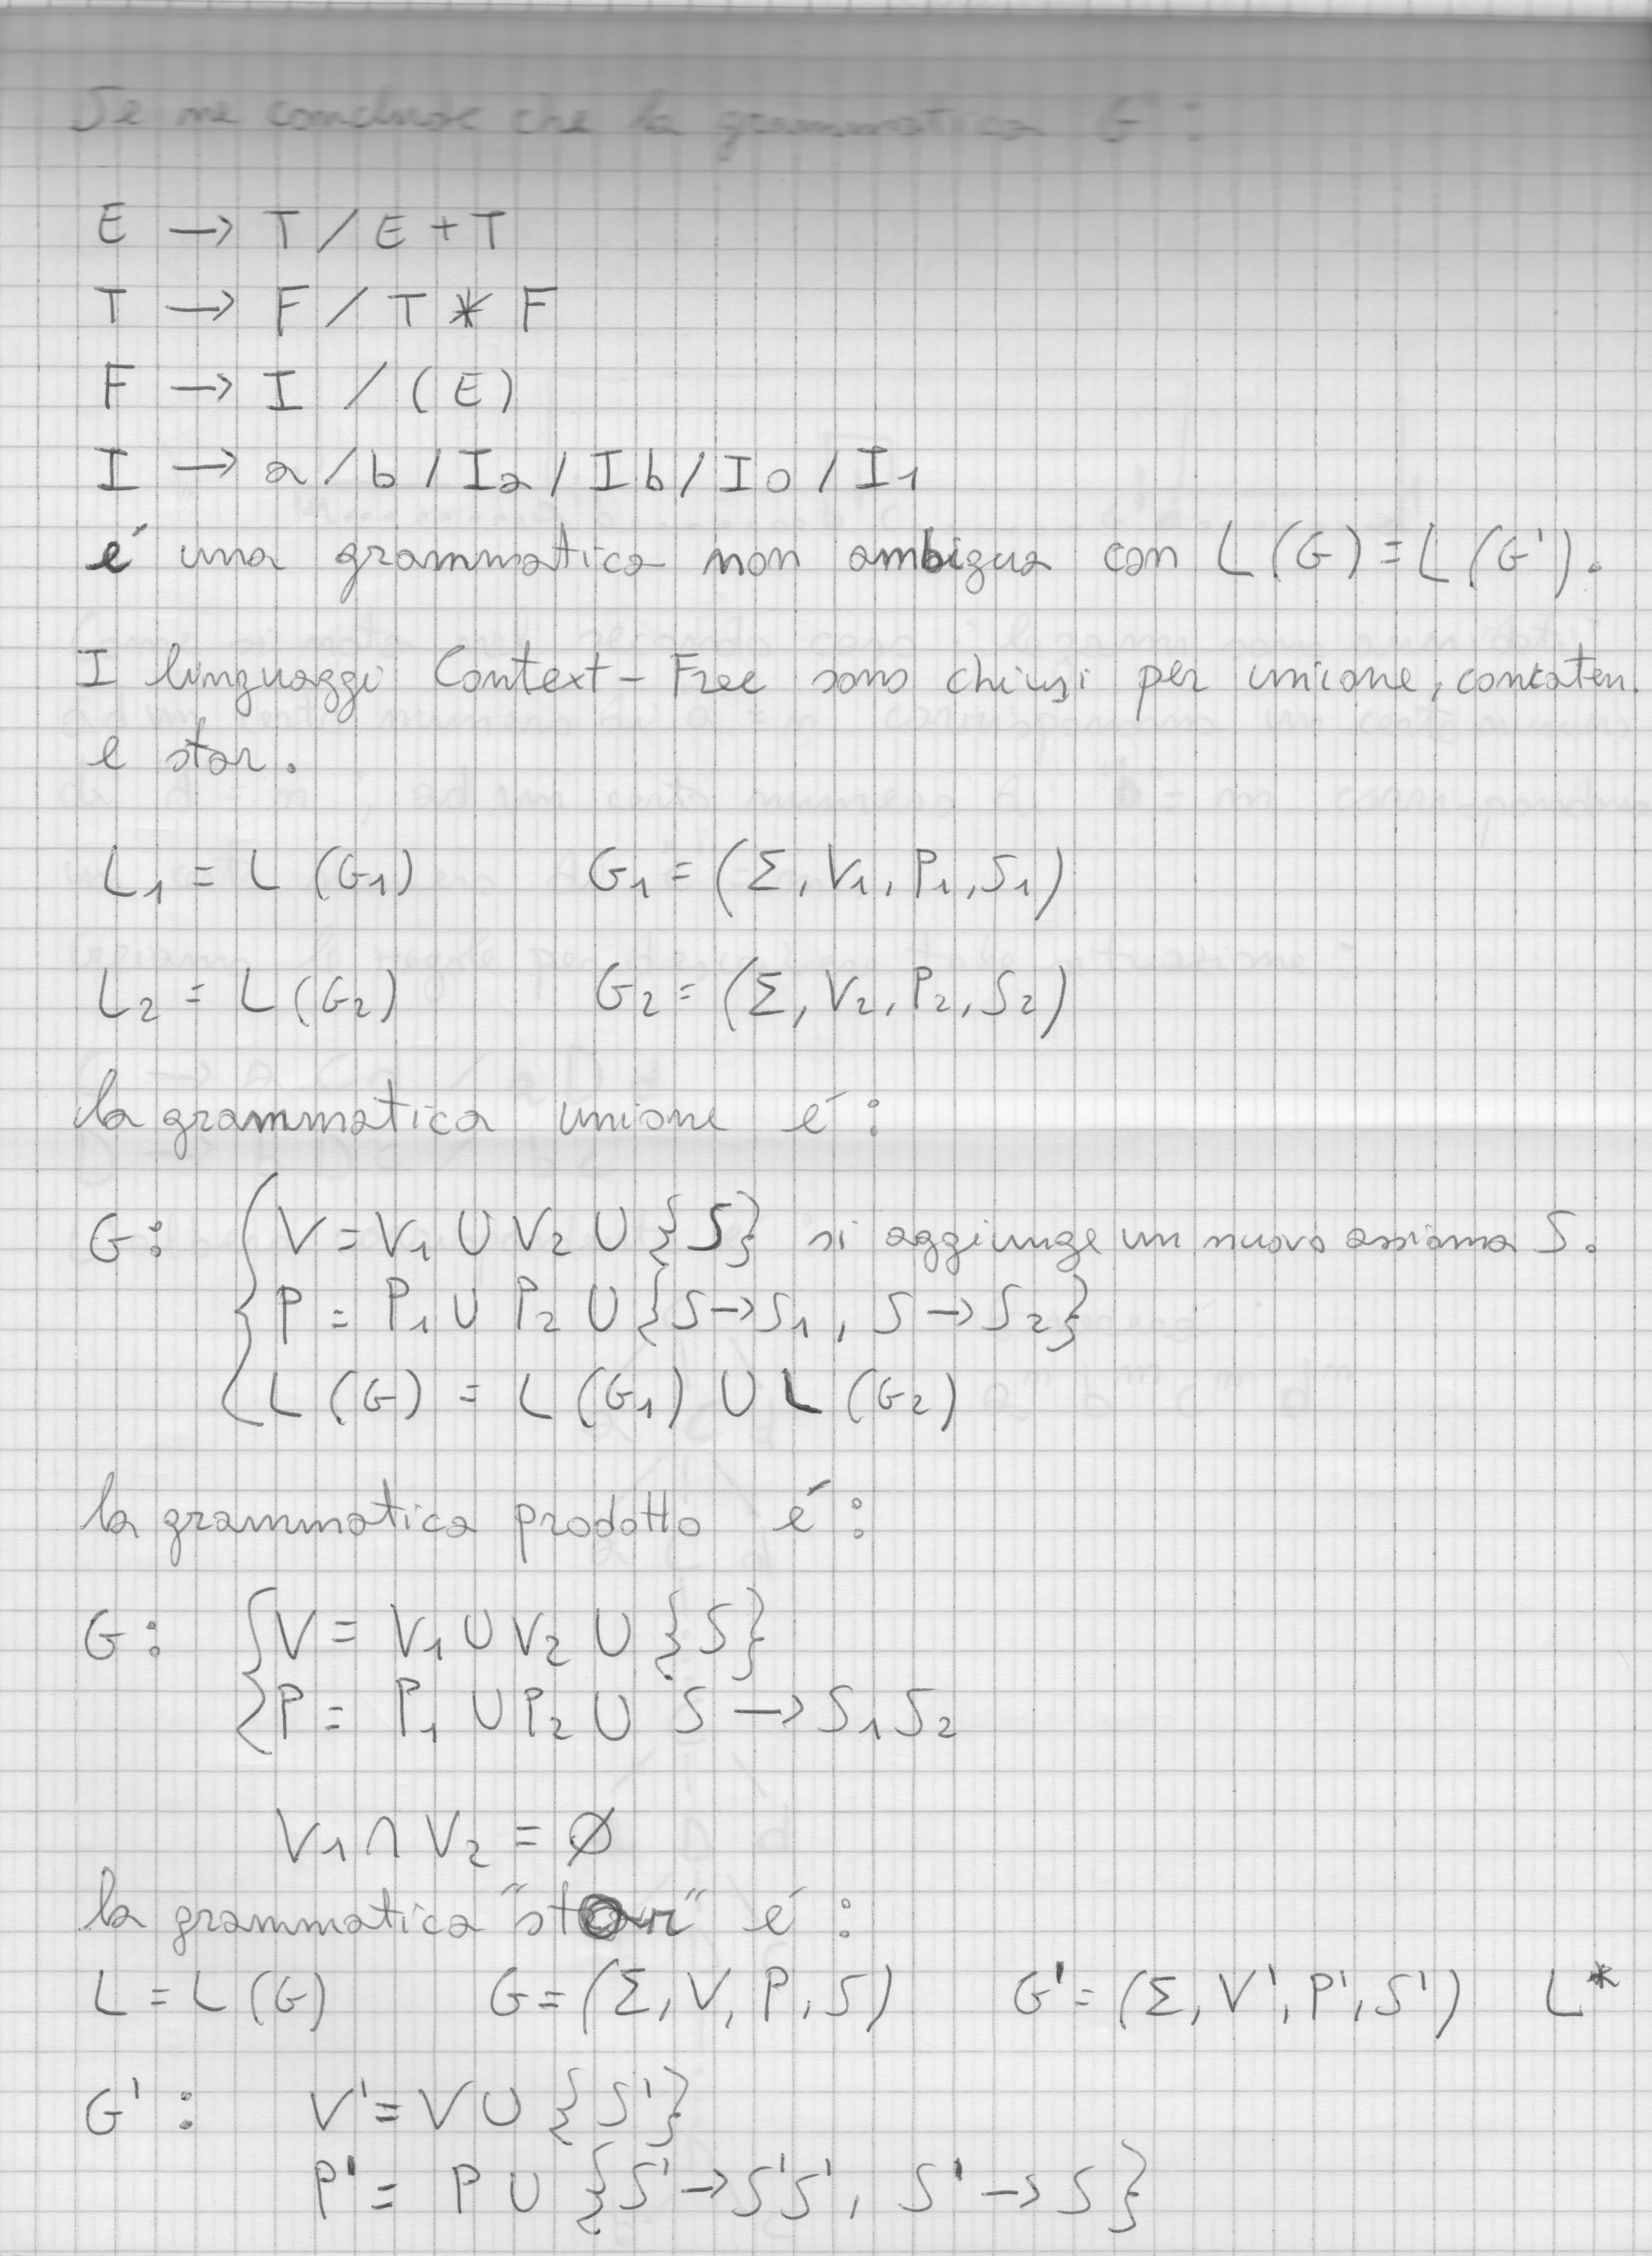 Se ne conclude che la grammatica G':
E → T / E + T
T → F / T * F
F → I / (E)
I → a / b / Ia / Ib / I0 / I1
é una grammatica non ambigua con L(G) = L(G').
I linguaggi Context-Free sono chiusi per unione, concaten.
e star.
L1 = L(G1) G1 = (Σ, V1, P1, S1)
L2 = L(G2) G2 = (Σ, V2, P2, S2)
la grammatica unione é:
G: { V = V1 ∪ V2 ∪ {S} si aggiunge un nuovo assioma S.
P = P1 ∪ P2 ∪ {S → S1, S → S2}
L(G) = L(G1) ∪ L(G2)
la grammatica prodotto é:
G: { V = V1 ∪ V2 ∪ {S}
P = P1 ∪ P2 ∪ S → S1 S2
V1 ∩ V2 = Ø
la grammatica "star" é:
L = L(G) G = (Σ, V, P, S) G' = (Σ, V', P', S') L*
G': V' = V ∪ {S'}
P' = P ∪ {S' → S'S', S' → S}